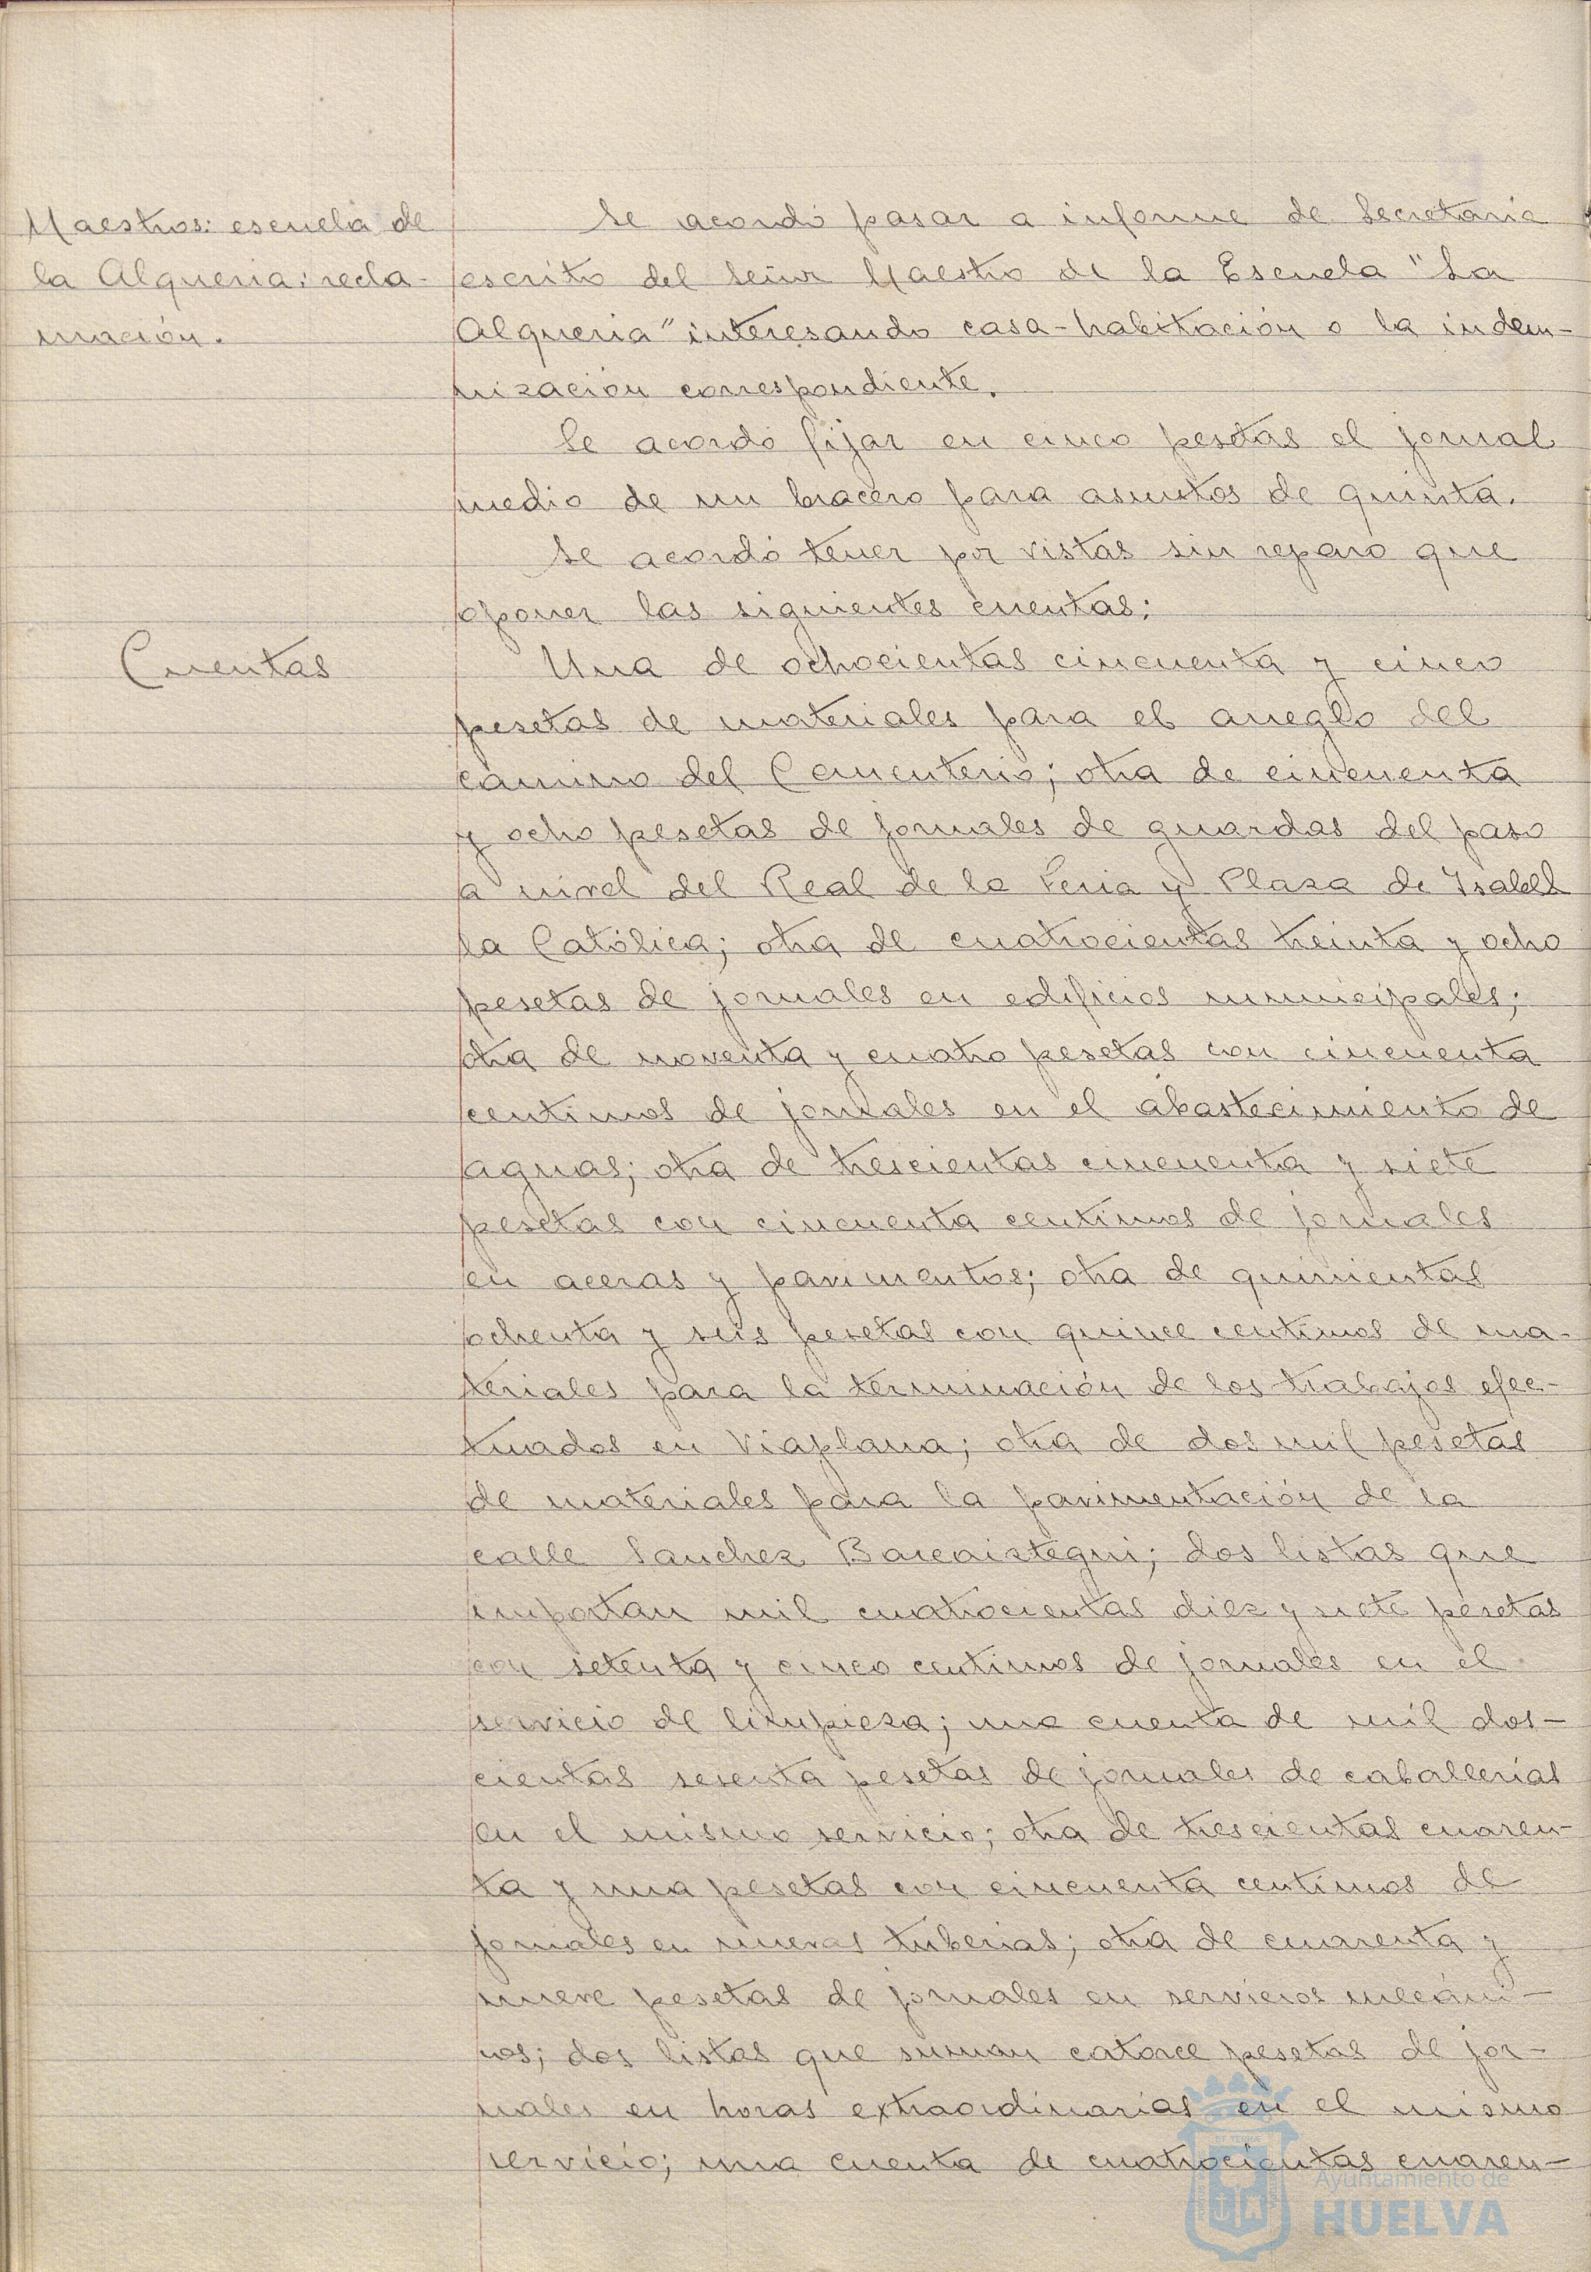 Maestros: escuela de
la Alqueria: recla-
mación.
Se acordó pasar a informe de Secretaria
escrito del Señor Maestro de la Escuela "La
Alqueria" interesando casa-habitación o la indem-
nización correspondiente.
Se acordó fijar en cinco pesetas el jornal
medio de un bracero para asuntos de quinta.
Se acordó tener por vistas sin reparo que
oponer las siguientes cuentas:
Cuentas
Una de ochocientas cincuenta y cinco
pesetas de materiales para el arreglo del
camino del Cementerio; otra de cincuenta
y ocho pesetas de jornales de guardas del paso
a nivel del Real de la Feria y Plaza de Isabel
la Católica; otra de cuatrocientas treinta y ocho
pesetas de jornales en edificios municipales;
otra de noventa y cuatro pesetas con cincuenta
centimos de jornales en el abastecimiento de
aguas; otra de trescientas cincuenta y siete
pesetas con cincuenta centimos de jornales
en aceras y pavimentos; otra de quinientas
ochenta y seis pesetas con quince centimos de ma-
teriales para la terminación de los trabajos efec-
tuados en Viaplana; otra de dos mil pesetas
de materiales para la pavimentación de la
calle Sanchez Barcaiztegui; dos listas que
importan mil cuatrocientas diez y siete pesetas
con setenta y cinco centimos de jornales en el
servicio de limpieza; una cuenta de mil dos-
cientas sesenta pesetas de jornales de caballerías
en el mismo servicio; otra de trescientas cuaren-
ta y una pesetas con cincuenta centimos de
jornales en nuevas tuberias; otra de cuarenta y
nueve pesetas de jornales en servicios mecáni-
cos; dos listas que suman catorce pesetas de jor-
nales en horas extraordinarias en el mismo
servicio; una cuenta de cuatrocientas cuaren-
Ayuntamiento de
HUELVA